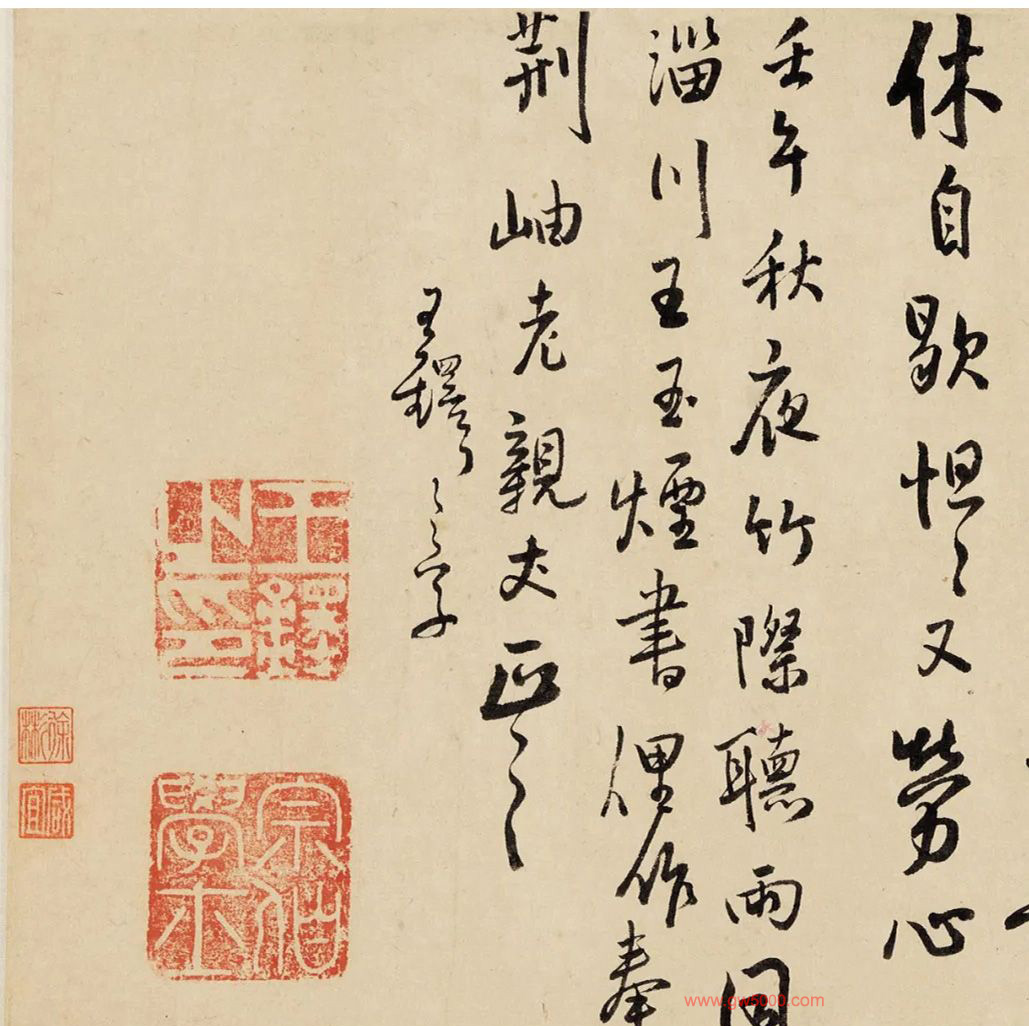 休自歇怛〻又勞心
壬午秋夜竹際聽雨同
淄川王玉煙書俚作奉
荆岫老親丈正之
王鐸
王鐸之印
宗伯學士
www.gw5000.com